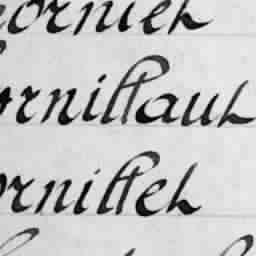 orniet
ornillaut
ornillet